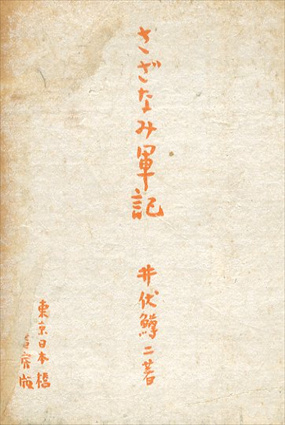 さざなみ軍記
井伏鱒二著
東京日本橋
房版